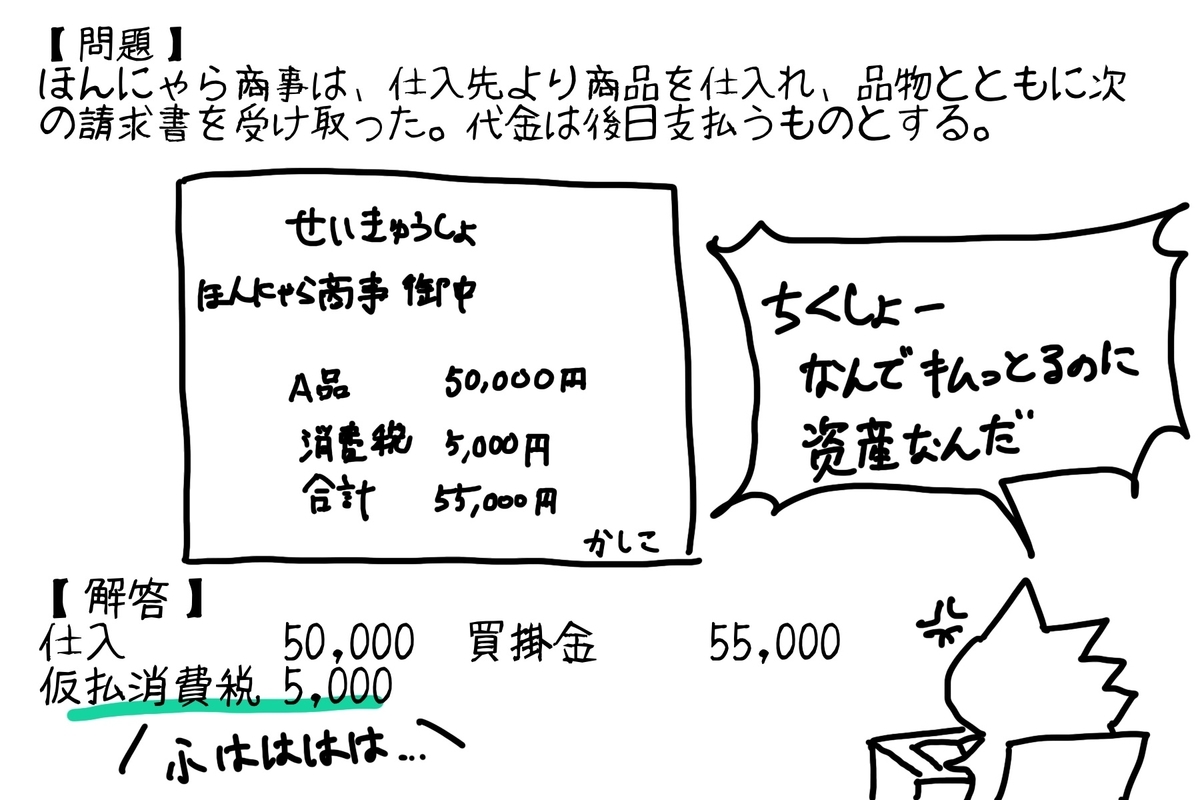 【問題】
ほんにゃら商事は、仕入先より商品を仕入れ、品物とともに次
の請求書を受け取った。代金は後日支払うものとする。
せいきゅうしょ
ほんにゃら商事 御中
A品 50,000円
消費税 5,000円
合計 55,000円
かしこ
ちくしょー
なんでキムっとるのに
資産なんだ
【解答】
仕入 50,000 買掛金 55,000
仮払消費税 5,000
ふはははは…